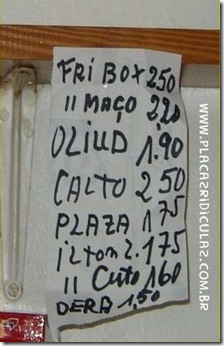 FRI BOX 250
11 MAÇO 2,20
OLIUD 1.90
CALTO 2 50
PLAZA 175
ILTOM L. 175
11 Cuto 160
DERA 1,50
WWW.PLACASRIDICULAS.COM.BR